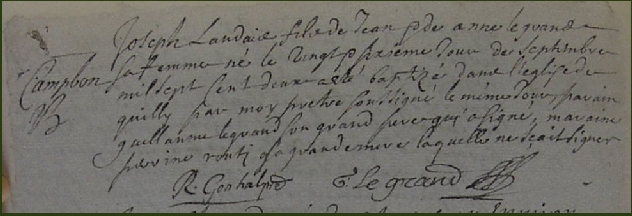 Joseph Landais fils de Jean & de anne le grand
Campbon
sa femme ne le vingt & sixieme Jour de septembre
mil sept cent deux a esté baptizé dans l'eglise de
quilly par moy pretre soussigné le même Jour, parain
guillaume legrand son grand pere qui a signé, maraine
perrine sa grande mere laquelle ne sçait signer
R. G le grand